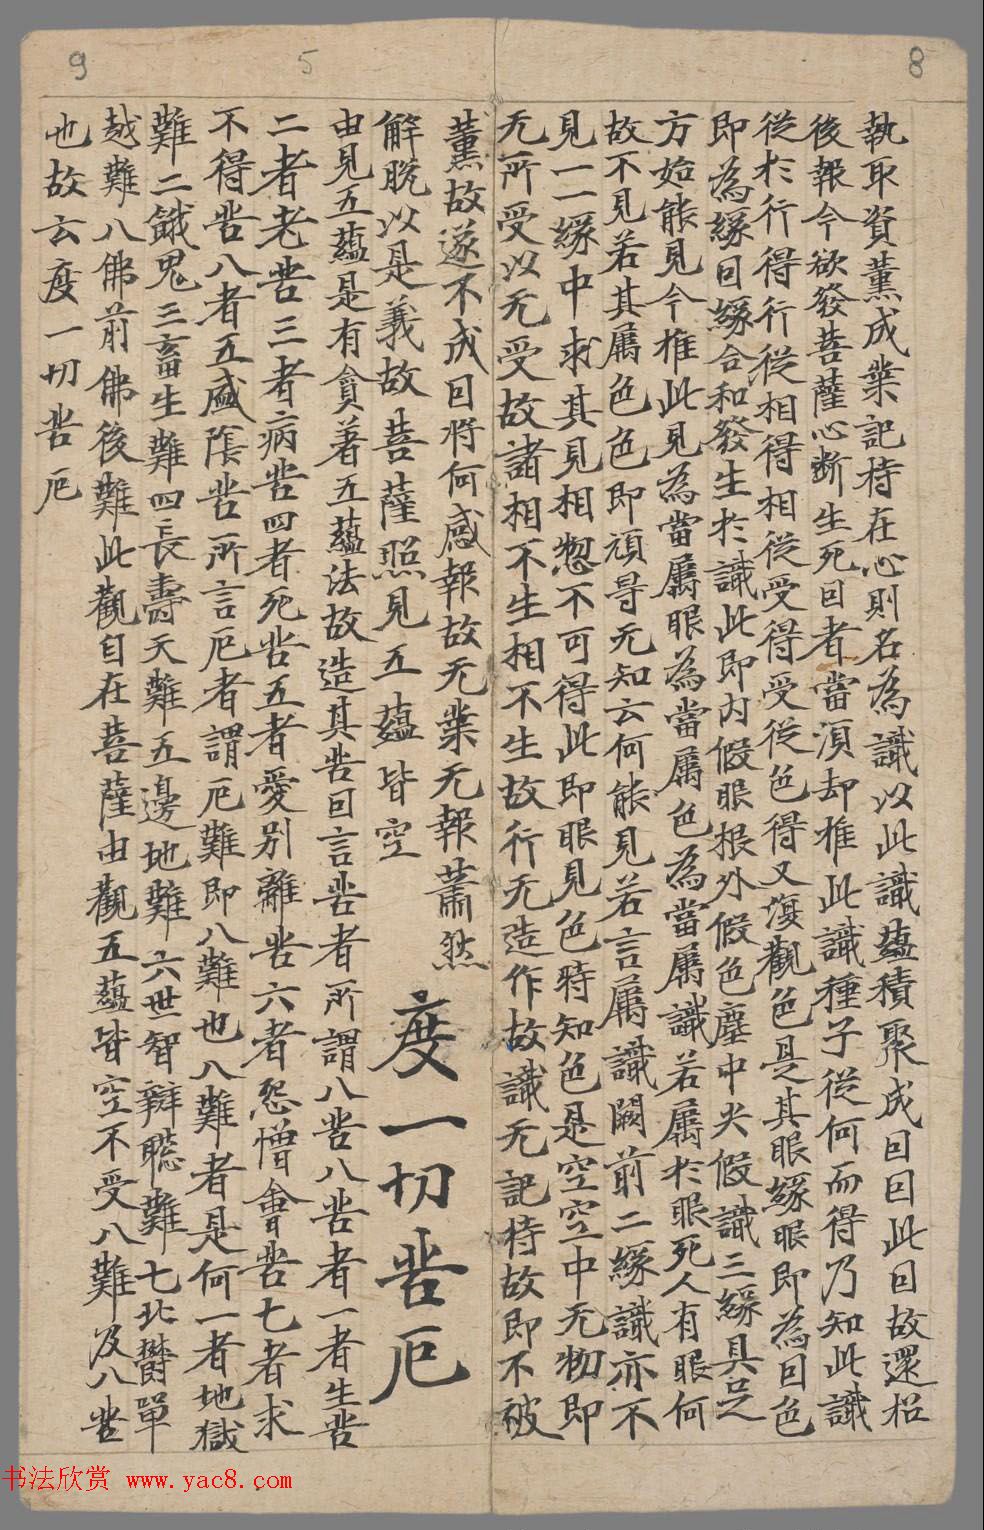 8
執取資薰成業記持在心則名為識以此識蘊積聚成因因此因故還招
後報今欲發菩薩心斷生死因者當須却推此識種子從何而得乃知此識
從於行得行從相得相從受得受從色得又復觀色是其眼緣眼即為因色
即為緣因緣合和發生於識此即內假眼根外假色塵中央假識三緣具足
方始能見今推此見為當屬眼為當屬色為當屬識若屬於眼死人有眼何
故不見若其屬色色即頑㝵无知云何能見若言屬識闕前二緣識亦不
見一一緣中求其見相惣不可得此即眼見色時知色是空空中无物即
无所受以无受故諸相不生相不生故行无造作故識无記持故即不被
5
9
薰故遂不成因將何感報故无業无報蕭然
解脫以是義故菩薩照見五蘊皆空 度一切苦厄
由見五蘊是有貪著五蘊法故造其苦因言苦者所謂八苦八苦者一者生苦
二者老苦三者病苦四者死苦五者愛別離苦六者怨憎會苦七者求
不得苦八者五盛陰苦所言厄者謂厄難即八難也八難者是何一者地獄
難二餓鬼三畜生難四長壽天難五邊地難六世智辯聰難七北欝單
越難八佛前佛後難此觀自在菩薩由觀五蘊皆空不受八難及八苦
也故云度一切苦厄
书法欣赏 www.yac8.com